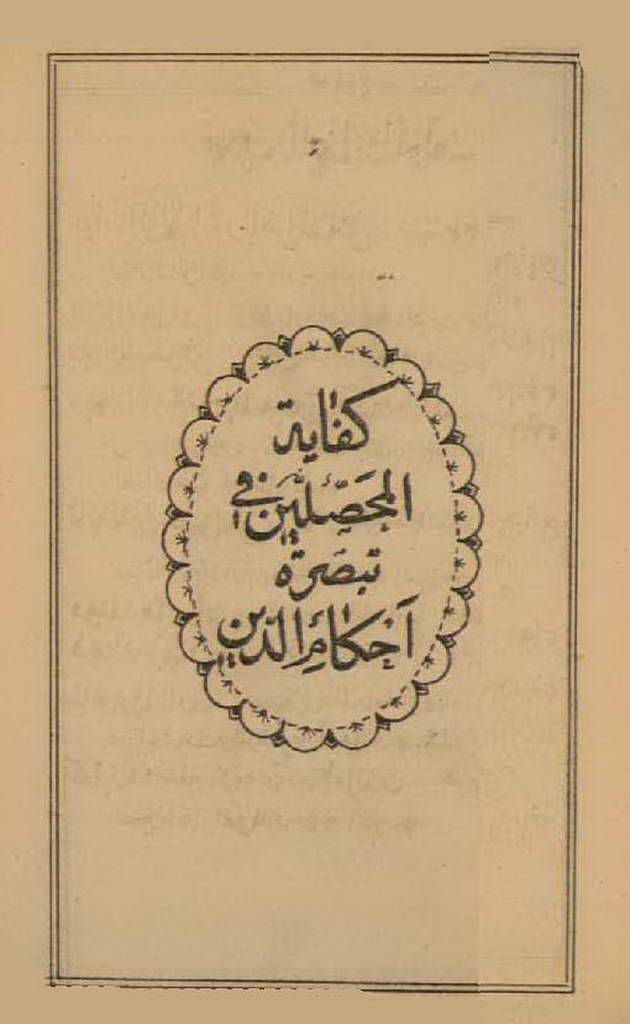 كفاية
المحصّلين في
تبصرة
أحكام الدين